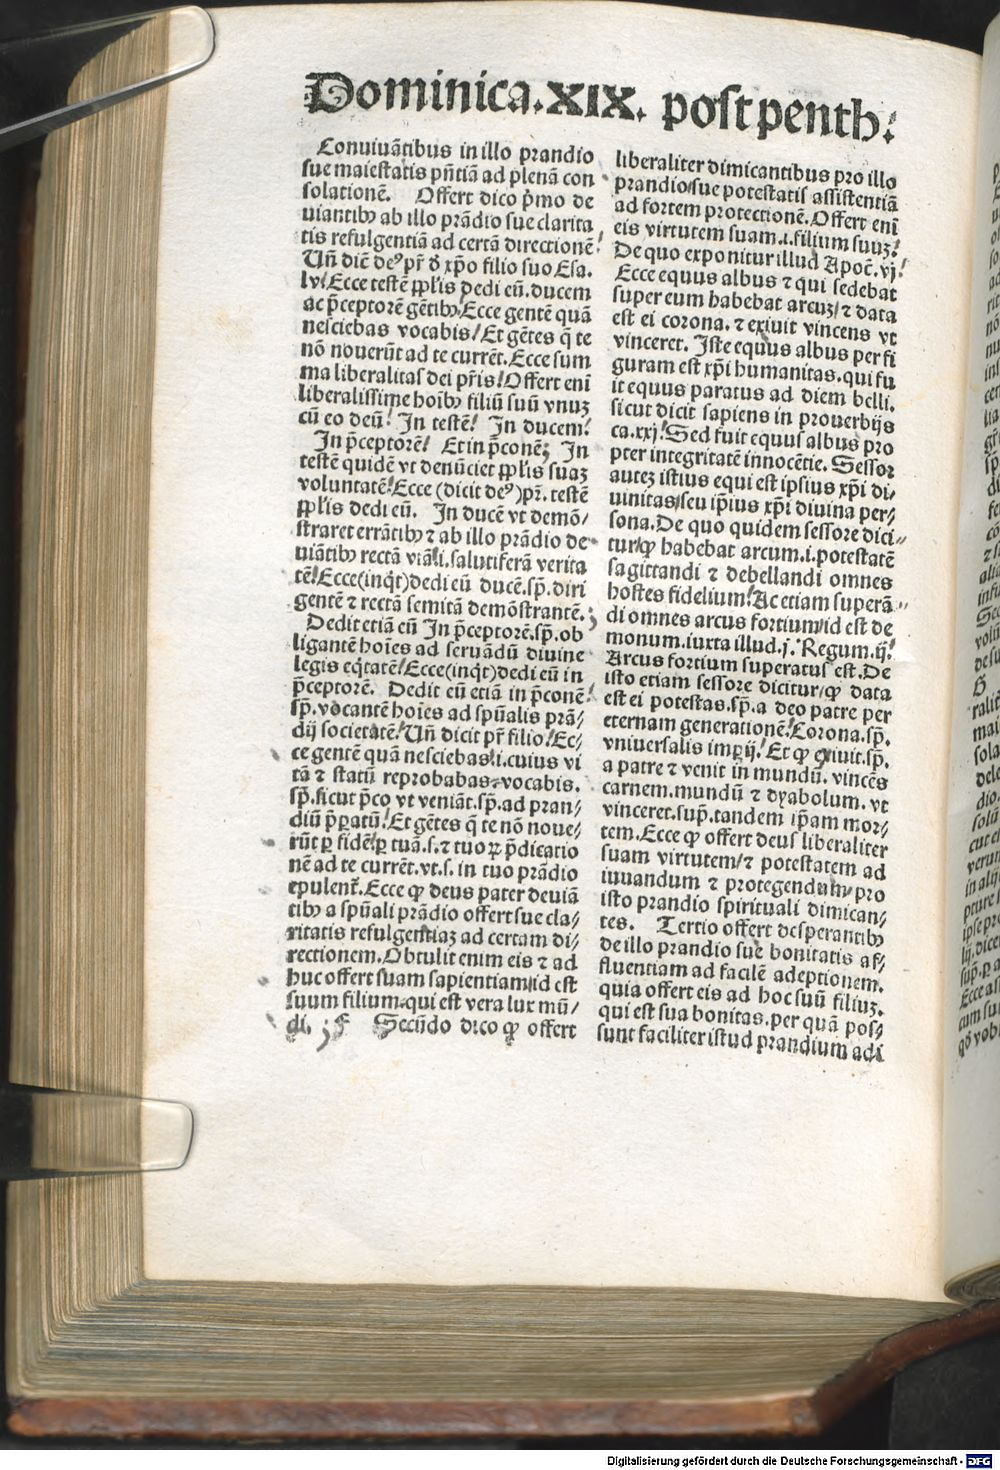 Dominica.XIX. post penth.
Conuiuãtibus in illo prandio
sue maiestatis pñtiã ad plenã con
solationẽ. Offert dico p̃mo de
uiantibꝫ ab illo prãdio sue clarita
tis refulgentiã ad certã directionẽ
Uñ diẽ deꝰ pr̃ ð xp̃o filio suo Esa.
lv/Ecce testẽ pplis dedi eũ.ducem
ac p̃ceptorẽ gẽtibꝫ/Ecce gentẽ quã
nesciebas vocabis/Et gẽtes q̃ te
nõ nouerũt ad te currẽt.Ecce sum
ma liberalitas dei pr̃is/Offert enĩ
liberalissime hoĩbꝫ filiũ suũ vnuꝫ
cũ eo deũ/ In testẽ/ In ducem/
In p̃ceptorẽ/ Et in p̃conẽ; In
testẽ quidẽ vt denũciet pplis suaꝫ
voluntatẽ/Ecce (dicit deꝰ)pr̃. testẽ
pplis dedi eũ. In ducẽ vt demõ/
straret errãtibꝫ ⁊ ab illo prãdio de
uiãtibꝫ rectã viã/i.salutiferã verita
tẽ/Ecce(inq̃t)dedi eũ ducẽ.sp̃. diri
gentẽ ⁊ rectã semitã demõstrantẽ.
Dedit etiã eũ In p̃ceptorẽ.sp̃. ob
ligantẽ hoĩes ad seruãdũ diuine
legis eq̃tatẽ/Ecce(inq̃t)dedi eũ in
p̃ceptorẽ. Dedit eũ etiã in p̃conẽ
sp̃.vocantẽ hoĩes ad spũalis prã/
dij societatẽ/Uñ dicit pr̃ filio/Ec/
ce gentẽ quã nesciebas/i.cuius vi
tã ⁊ statũ reprobabas vocabis.
sp̃.sicut p̃co vt veniãt.sp̃.ad pran/
diũ p̃ꝑatũ/Et gẽtes q̃ te nõ noue/
rũt ꝑ fidẽ/ꝑ tuã.s.⁊ tuoꝝ p̃dicatio
nẽ ad te currẽt.vt.s. in tuo prãdio
epulent᷑.Ecce ꝙ deus pater deuiã
tibꝫ a spũali prãdio offert sue cla/
ritatis refulgentiaꝫ ad certam di/
rectionem.Obtulit enim eis ⁊ ad
huc offert suam sapientiam/id est
suum filium.qui est vera lux mũ/
di. Secũdo dico ꝙ offert
liberaliter dimicantibus pro illo
prandio/sue potestatis assistentiã
ad fortem protectionẽ.Offert enĩ
eis virtutem suam.i.filium suuꝫ/
De quo exponitur illud Apoc̃.vj/
Ecce equus albus ⁊ qui sedebat
super eum habebat arcuꝫ/⁊ data
est ei corona. ⁊ exiuit vincens vt
vinceret. Iste equus albus per fi
guram est xp̃i humanitas.qui fu
it equus paratus ad diem belli.
sicut dicit sapiens in prouerbijs
ca.xxj/Sed fuit equus albus pro
pter integritatẽ innocẽtie. Sessor
auteꝫ istius equi est ipsius xp̃i di/
uinitas/seu ip̃ius xp̃i diuina per/
sona.De quo quidem sessore dici/
tur/ꝙ habebat arcum.i.potestatẽ
sagittandi ⁊ debellandi omnes
hostes fidelium/Ac etiam superã/
di omnes arcus fortium/id est de
monum.iuxta illud.j. Regum.ij/
Arcus fortium superatus est.De
isto etiam sessore dicitur/ꝙ data
est ei potestas.sp̃.a deo patre per
eternam generationẽ/Corona.sp̃.
vniuersalis imꝑij/Et ꝙ exiuit.sp̃.
a patre ⁊ venit in mundũ. vincẽs
carnem.mundũ ⁊ dyabolum. vt
vinceret.sup̃.tandem ip̃am mor/
tem.Ecce ꝙ offert deus liberaliter
suam virtutem/⁊ potestatem ad
iuuandum ⁊ protegendum/pro
isto prandio spirituali dimican/
tes. Tertio offert desperantibꝫ
de illo prandio sue bonitatis af/
fluentiam ad facilẽ adeptionem.
quia offert eis ad hoc suũ filiuꝫ.
qui est sua bonitas.per quã pos/
sunt faciliter istud prandium adi
Digitalisierung gefördert durch die Deutsche Forschungsgemeinschaft - DFG